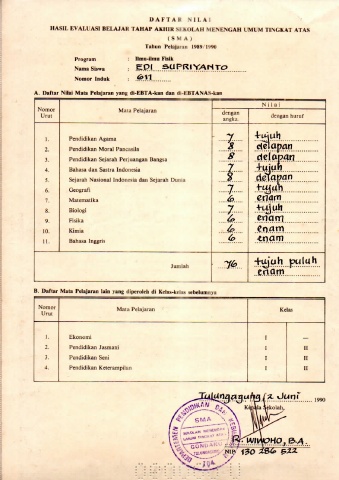 DAFTAR NILAI
HASIL EVALUASI BELAJAR TAHAP AKHIR SEKOLAH MENENGAH UMUM TINGKAT ATAS
(SMA)
Tahun Pelajaran 1989/1990
Program : Ilmu-ilmu Fisik
Nama Siswa : EDI SUPRIYANTO
Nomor Induk : 611
A. Daftar Nilai Mata Pelajaran yang di-EBTA-kan dan di-EBTANAS-kan
Nomor Urut Mata Pelajaran Nilai
dengan angka dengan huruf
1. Pendidikan Agama 7 tujuh
2. Pendidikan Moral Pancasila 8 delapan
3. Pendidikan Sejarah Perjuangan Bangsa 8 delapan
4. Bahasa dan Sastra Indonesia 7 tujuh
5. Sejarah Nasional Indonesia dan Sejarah Dunia 8 delapan
6. Geografi 7 tujuh
7. Matematika 6 enam
8. Biologi 7 tujuh
9. Fisika 6 enam
10. Kimia 6 enam
11. Bahasa Inggris 6 enam
Jumlah 76 tujuh puluh
enam
B. Daftar Mata Pelajaran lain yang diperoleh di Kelas-kelas sebelumnya
Nomor Urut Mata Pelajaran Kelas
1. Ekonomi I —
2. Pendidikan Jasmani I II
3. Pendidikan Seni I II
4. Pendidikan Keterampilan I II
Tulungagung, 2 Juni 1990
Kepala Sekolah,
DEPARTEMEN PENDIDIKAN DAN
SMA
SEKOLAH MENENGAH
UMUM TINGKAT ATAS
R. WIWOHO, B.A.
NIP. 130 286 522